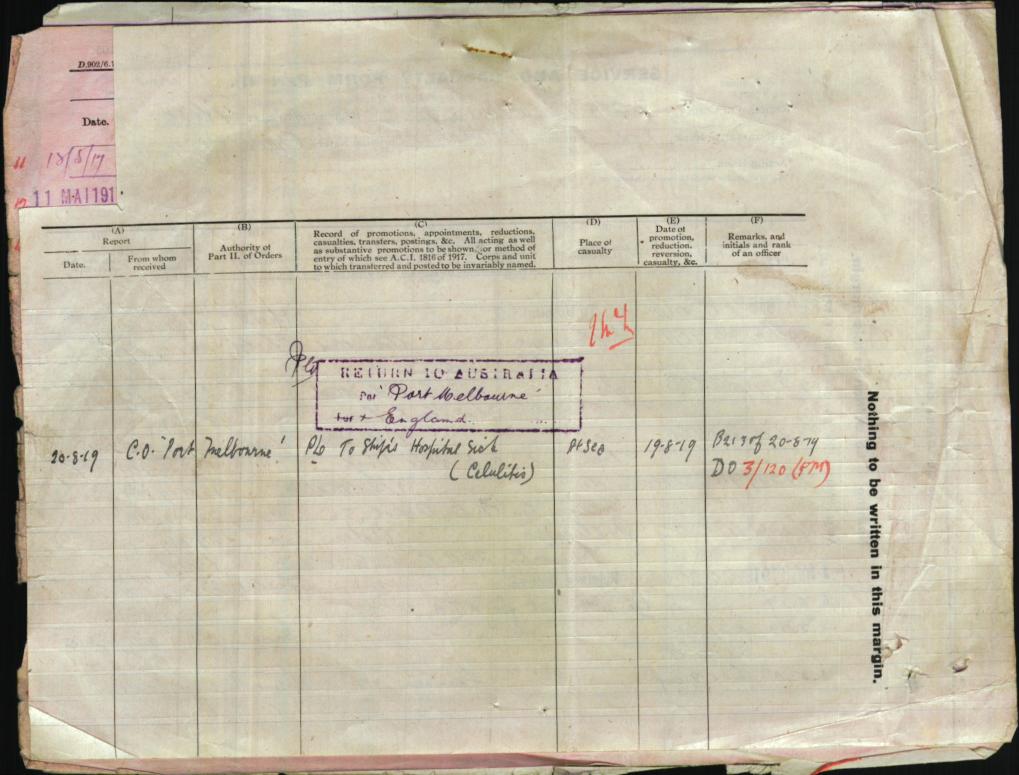 D.902/6.1
Date.
18/8/17
11 MAI 191
(A)
Report
Date.
From whom
received
(B)
Authority of
Part II. of Orders
(C)
Record of promotions, appointments, reductions,
casualties, transfers, postings, &c. All acting as well
as substantive promotions to be shown, or method of
entry of which see A.C.I. 1816 of 1917. Corps and unit
to which transferred and posted to be invariably named.
(D)
Place of
casualty
(E)
Date of
promotion,
reduction,
reversion,
casualty, &c.
(F)
Remarks, and
initials and rank
of an officer
RETURN TO AUSTRALIA
Per "Port Melbourne"
England
20-8-19 C.O. "Port Melbourne" To Ship's Hospital Sick At Sea 19-8-19
(Celulitis) DO 3/120 (PM)
Nothing to be written in this margin.